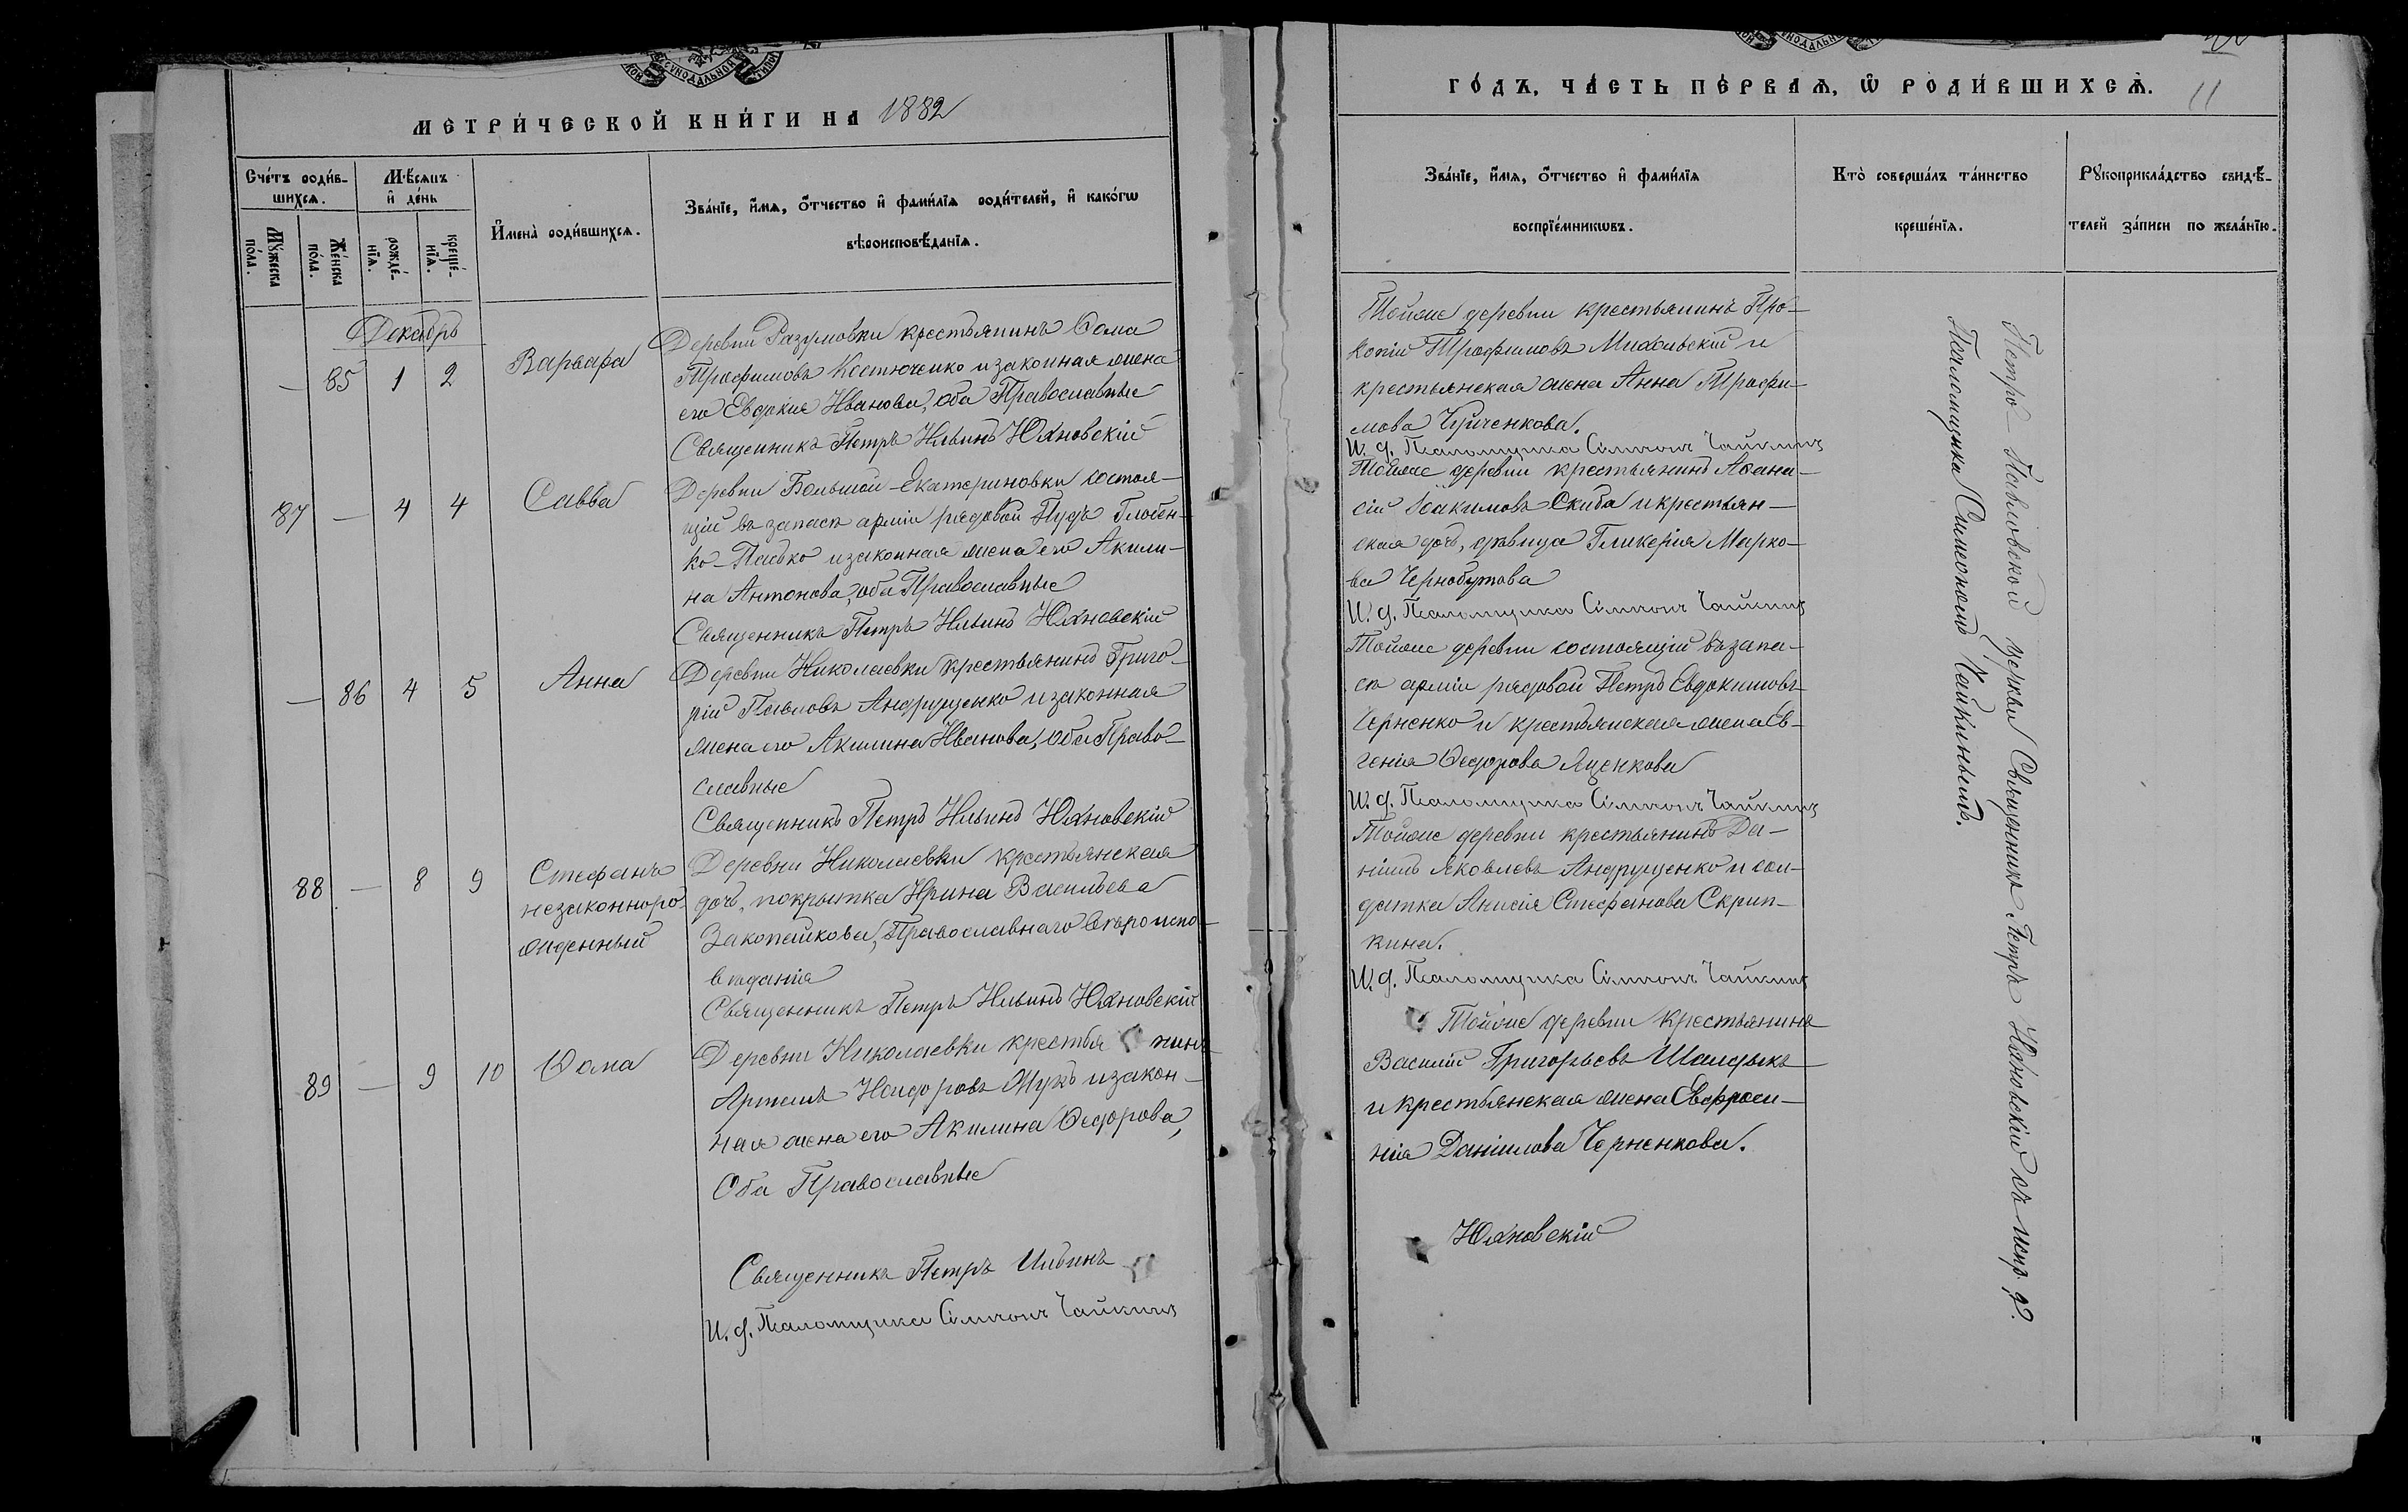 МЕТРИ́ЧЕСКОЙ КНИ́ГИ НА 1882
Сче́тъ роди́в-
шихсѧ.
Му́жеска
по́ла.
Же́нска
по́ла.
Мѣ́сѧцъ
и҆ де́нь
рожде́-
нїѧ.
креще́-
нїѧ.
И҆мена̀ роди́вшихсѧ.
Зва́нїе, и҆́мѧ, ѻ҆́тчество и҆ фами́лїѧ роди́телей, и҆ како́гѡ
вѣроисповѣ́данїѧ.
Декабрь
— 85 1 2
Варвара
Деревни Разумовки крестьянинъ Ѳома
Трофимовъ Костюченко и законная жена
его Евдокия Иванова, оба Православные
Священникъ Петръ Ильинъ Юхновскій
87 — 4 4
Савва
Деревни Большой-Екатериновки состоя-
щій въ запасѣ арміи рядовой Пудъ Глобен-
ко-Пабко и законная жена его Акили-
на Антонова, оба Православные
Священникъ Петръ Ильинъ Юхновскій
— 86 4 5
Анна
Деревни Николаевки крестьянинъ Григо-
рій Павловъ Андрущенко и законная
жена его Акилина Иванова, оба Право-
славные
Священникъ Петръ Ильинъ Юхновскій
88 — 8 9
Стефанъ
незаконноро-
жденный
Деревни Николаевки крестьянская
дочь, покрытка Ирина Васильева
Закопайкова, Православнаго вѣроиспо-
вѣданія
Священникъ Петръ Ильинъ Юхновскій
89 — 9 10
Ѳома
Деревни Николаевки крестья нинъ
Артемъ Исидоровъ Жукъ и закон-
ная жена его Акилина Ѳедорова,
Оба Православные
Священникъ Петръ Ильинъ
И. д. Псаломщика Сѵмеонъ Чайкинъ
ГО́ДЪ, ЧА́СТЬ ПЕ́РВАѦ, Ѽ РОДИ́ВШИХСѦ.
11
Зва́нїе, и҆́мѧ, ѻ҆́тчество и҆ фами́лїѧ
воспрїе́мникѡвъ.
Кто̀ соверша́лъ та́инство
креще́нїѧ.
Рꙋкоприкла́дство свидѣ́-
телей за́писи по жела́нїю.
Тойже деревни крестьянинъ Про-
копій Трофимовъ Михавскій и
крестьянская жена Анна Трофи-
мова
И. д. Псаломщика Сѵмеонъ Чайкинъ
Тойже деревни крестьянинъ Аѳана-
сій Іоакимовъ Скиба и крестьян-
ская дочь, дѣвица Гликерія Марко-
ва Чернобутова
И. д. Псаломщика Сѵмеонъ Чайкинъ
Тойже деревни состоящій въ запа-
сѣ арміи рядовой Петръ Евдокимовъ
Черненко и крестьянская жена Ев-
генія Ѳедорова Яценкова
И. д. Псаломщика Сѵмеонъ Чайкинъ
Тойже деревни крестьянинъ Да-
ніилъ Яковлевъ Андрущенко и сол-
датка Анисія Стефанова Скрип-
кина.
И. д. Псаломщика Сѵмеонъ Чайкинъ
Тойже деревни крестьянинъ
Василій Григорьевъ Шалдыкъ
и крестьянская жена Евфроси-
нія Даніилова Черненкова.
Юхновскій
Петро-Павловской церкви Священникъ Петръ Юхновскій съ испр. д.
Псаломщика Симеономъ Чайкинымъ.